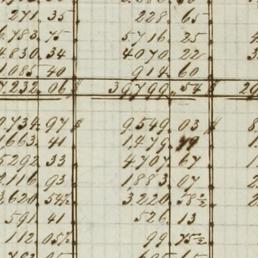 271 35 228 65
6783 75 5716 25
4830 34 4070 22
1085 40 914 60
7232 06 $ 39799 54 $ 29
9734 97 $ 9549 03 $
1663 41 1479
5292 33 4707 67
2116 93 1883 07
3620 54½ 3220 58½
591 41 526 13
112 05½ 99 75½